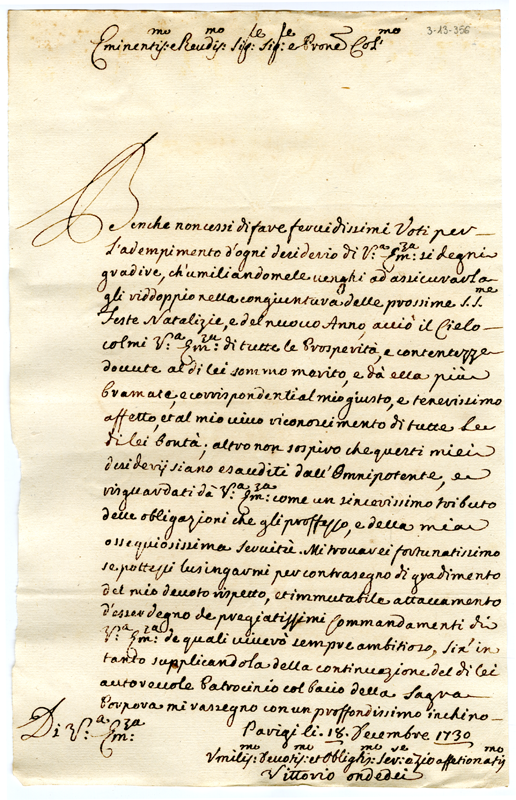 3-13-356
Eminentis:mo e Reudis:mo Sig:re Sig:re e Prone Col:mo
Benche non cessi di fare feruidissimi Voti per
l'adempimento d'ogni desiderio di V:a Em:za si degni
gradire, ch'umiliandomele uenghi ad assicurarla
gli riddoppio nella congiuntura delle prossime S.S.me
feste Natalizie, e del nuouo Anno, acciò il Cielo
colmi V:a Em:za di tutte le Prosperità, e contentezze
douute al di lei sommo merito, e dà ella più
bramate, e corrispondenti al mio giusto, e tenerissimo
affetto, et al mio uiuo riconoscimento di tutte le
di lei bontà; altro non sospiro che questi miei
desiderij siano esauditi dall'Omnipotente, e
risguardati dà V:a Em:za come un sincerissimo tributo
delle obligazioni che gli proffesso, e della mia
ossequiosissima seruitù. Mi trouarei fortunatissimo
se potessi lusingarmi per contrasegno di gradimento
del mio deuoto rispetto, et immutabile attaccamento
d'esser degno de pregiatissimi Commandamenti di
V:a Em:za de quali uiuerò sempre ambitioso, sin' in
tanto supplicandola della continuazione del di lei
autoreuole Patrocinio col bacio della Sagra
Porpora mi rassegno con un proffondissimo inchino
Di V:a Em:za
Parigi li 18. Decembre 1730
Vmilis:mo Deuotis:mo et Obligñs:mo Ser:re azio affetionatis:mo
Vittorio ondedei